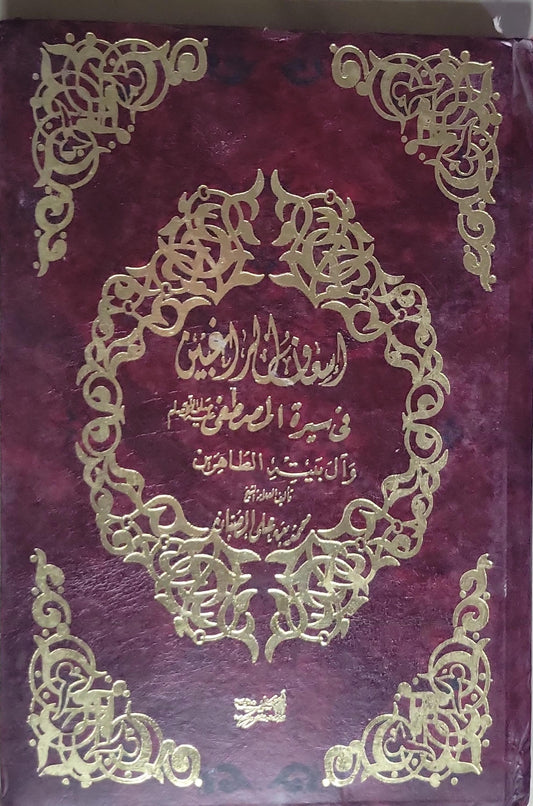 إسعاف الراغبين
في سيرة المصطفى صلى الله عليه وسلم
وآل بيته الطاهرين
تأليف العلامة الشيخ
محمد بن علي الصبان